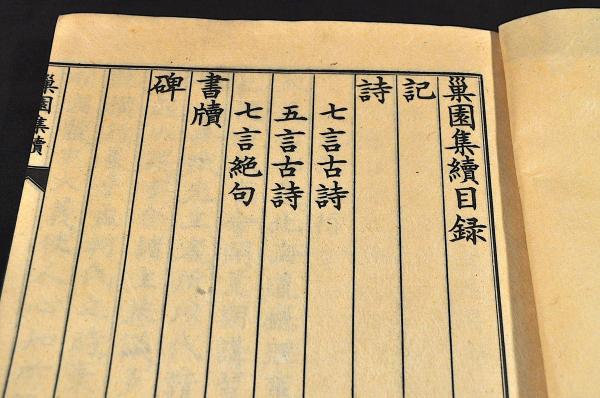 巢園集續目録
記
詩
七言古詩
五言古詩
七言絕句
書牘
碑
巢園集續